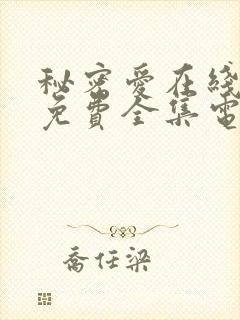 秘密愛在綫
免費全集電
喬任梁